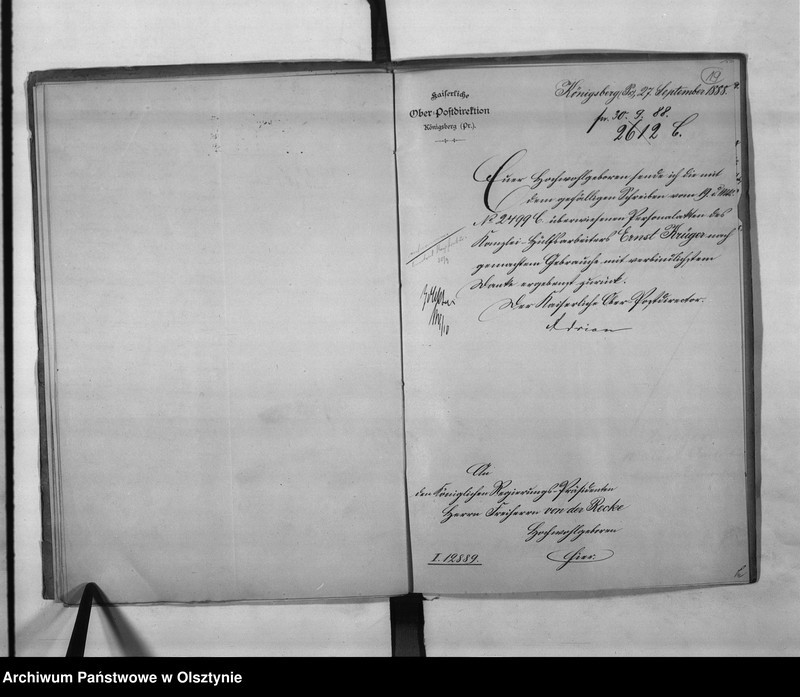 19
Kaiserliche
Ober-Postdirektion
Königsberg (Pr.).
Königsberg, Pr., 27 September 1888.
pr. 30. 9. 88.
2612 C.
Euer Hochwohlgeboren sende ich die mit
dem gefälligen Schreiben vom 19. d. Mts.
No 2499 C. überwiesenen Personalakten des
Kanzlei-Hülfsarbeiters Ernst Krüger nach
gemachtem Gebrauche mit verbindlichstem
Danke ergebenst zurück.
Der Kaiserliche Ober-Postdirector.
An
den Königlichen Regierungs-Präsidenten
Herrn Freiherrn von der Recke
Hochwohlgeboren
Hier.
I. 12889.
Archiwum Państwowe w Olsztynie